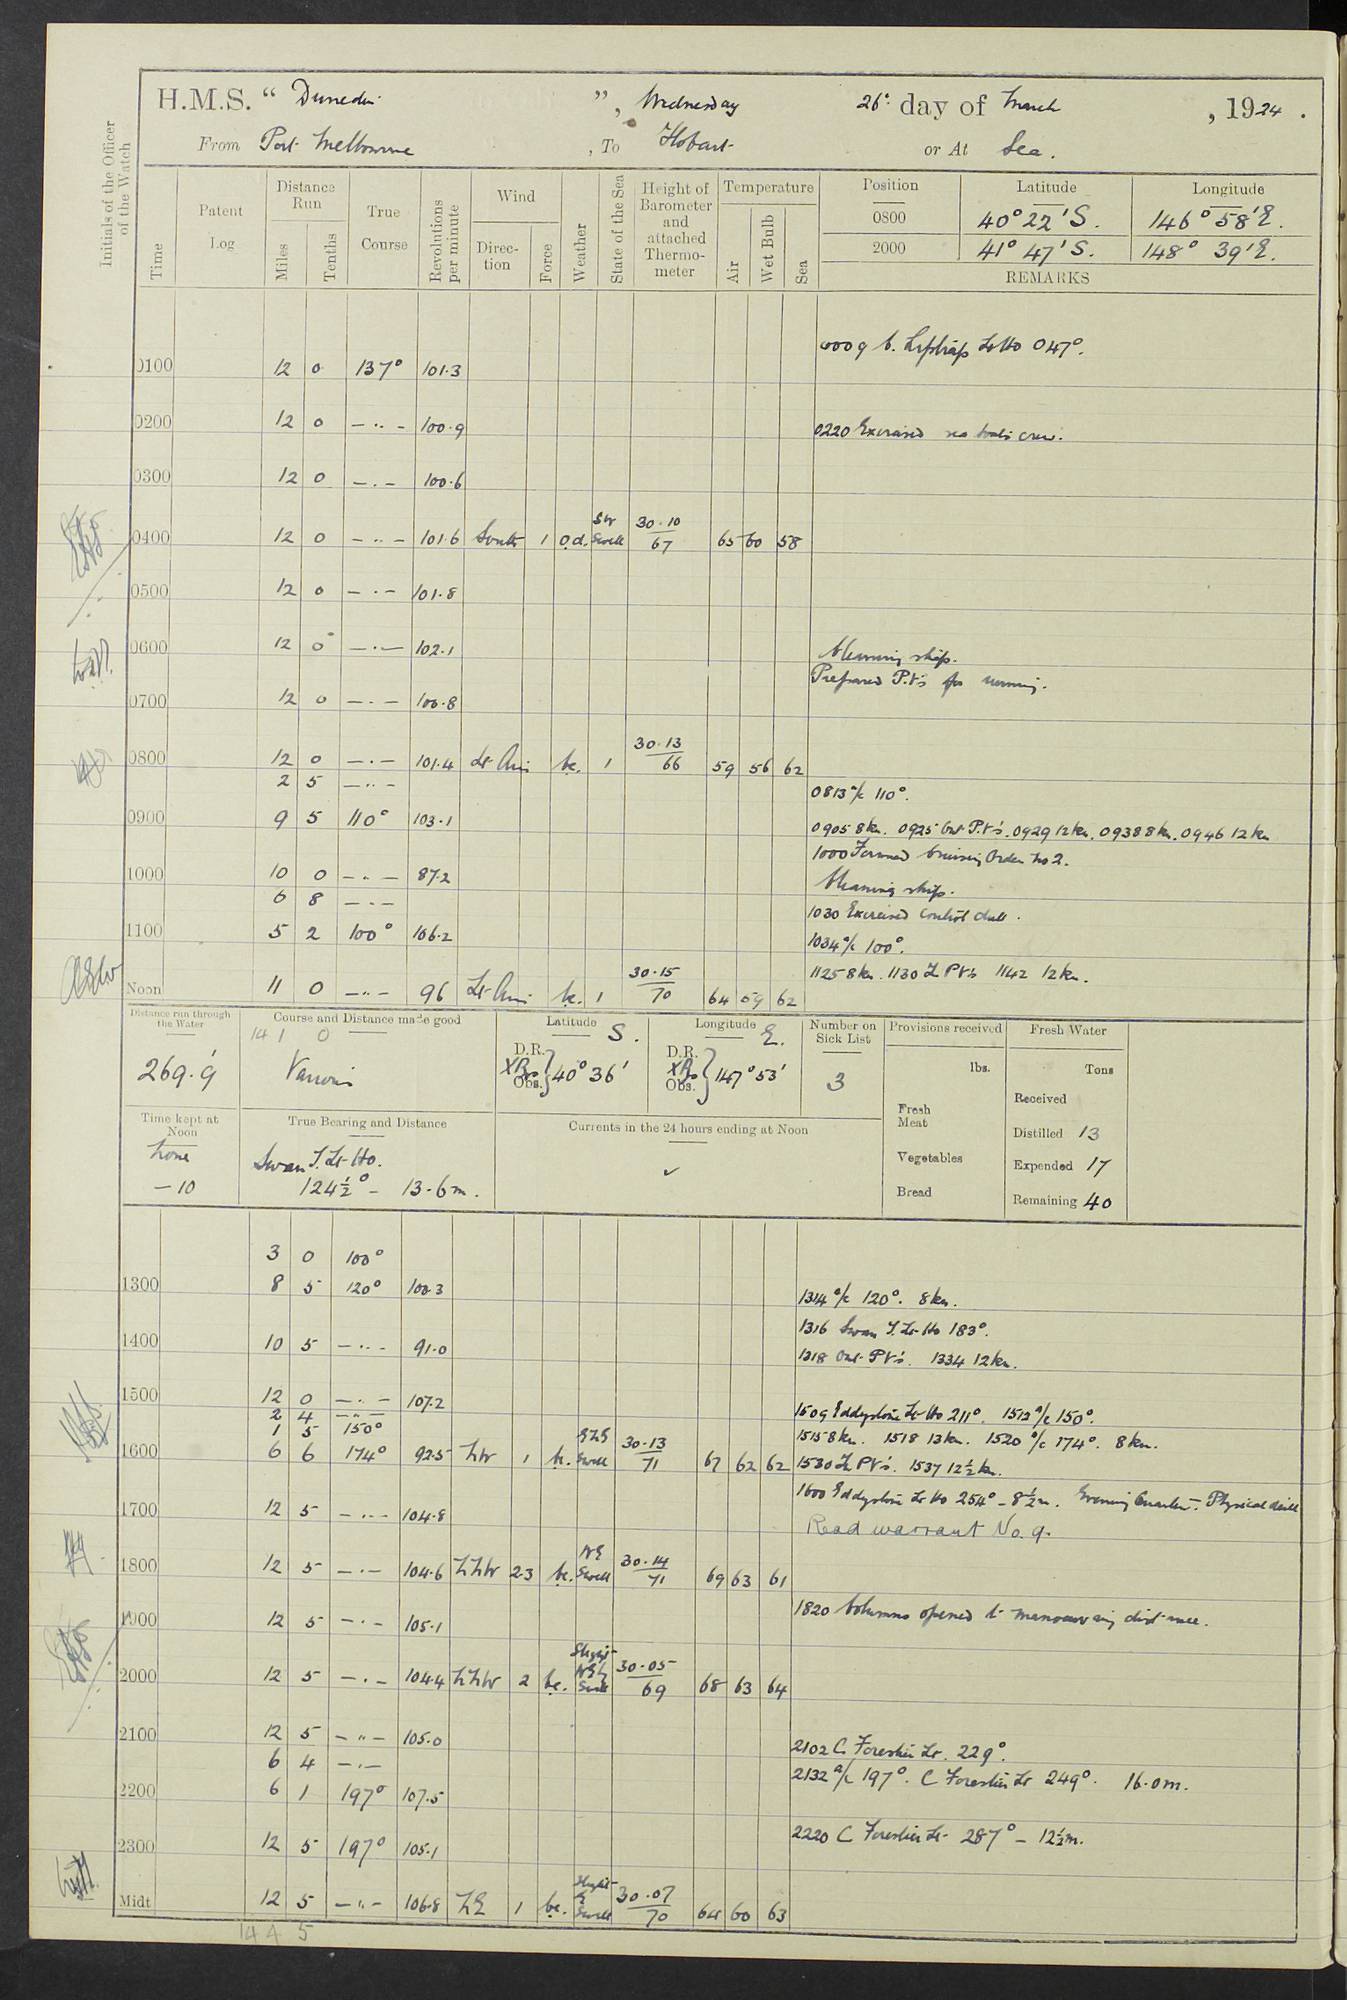 H.M.S. “ Dunedin ”, Wednesday 26th day of March, 1924.
From Port Melbourne, To Hobart or At Sea.
Initials of the Officer of the Watch
Time
Patent Log
Distance Run
Miles
Tenths
True Course
Revolutions per minute
Wind
Direction
Force
Weather
State of the Sea
Height of Barometer and attached Thermometer
Temperature
Air
Wet Bulb
Sea
Position Latitude Longitude
0800 40° 22' S. 146° 58' E.
2000 41° 47' S. 148° 39' E.
REMARKS
Lt Ho 047°.
0100 12 0 137° 101.3
0200 12 0 — " — 100.9
0220 Exercised sea boats crew.
0300 12 0 — " — 100.6
0400 12 0 — " — 101.6 South 1 o.d. SW Swell 30.10 67 65 60 58
0500 12 0 — " — 101.8
0600 12 0 — " — 102.1
Cleaning ship.
Prepared P.V's for running.
0700 12 0 — " — 100.8
0800 12 0 — " — 101.4 Lt Airs bc. 1 30.13 66 59 56 62
2 5 — " —
0813 a/c 110°.
0900 9 5 110° 103.1
0905 8 kn. 0925 Out P.V's. 0929 12 kn. 0938 8 kn. 0946 12 kn
1000 Formed Cruising Order No 2.
1000 10 0 — " — 87.2
Cleaning ship.
6 8 — " —
1030 Exercised control drill.
1100 5 2 100° 106.2
1034 a/c 100°.
1125 8 kn. 1130 In PVs 1142 12 kn.
Noon 11 0 — " — 96 Lt Airs bc. 1 30.15 70 64 59 62
Distance run through the Water
269.9'
Course and Distance made good
141 0
Various
Latitude S.
D.R.
Obs. 40° 36'
Longitude E.
D.R.
Obs. 147° 53'
Number on Sick List
3
Provisions received
lbs.
Fresh Meat
Vegetables
Bread
Fresh Water
Tons
Received
Distilled 13
Expended 17
Remaining 40
Time kept at Noon
Zone
— 10
True Bearing and Distance
Swan I. Lt Ho.
124½° — 13.6 m.
Currents in the 24 hours ending at Noon
✓
3 0 100°
1300 8 5 120° 100.3
1314 a/c 120°. 8 kn.
1316 Swan I. Lt Ho 183°.
1400 10 5 — " — 91.0
1318 Out PV's. 1334 12 kn.
1500 12 0 — " — 107.2
2 4 — " —
1509 Eddystone Lt Ho 211°. 1512 a/c 150°.
1 5 150°
1515 8 kn. 1518 13 kn. 1520 a/c 174°. 8 kn.
1600 6 6 174° 92.5 NW 1 bc. Swell 30.13 71 67 62 62
1530 In PV's. 1537 12½ kn.
1600 Eddystone Lt Ho 254° — 8½ m. Evening Quarters. Physical drill
1700 12 5 — " — 104.8
Read warrant No. 9.
1800 12 5 — " — 104.6 NNW 2-3 bc. NE Swell 30.14 71 69 63 61
1820 Columns opened to manoeuvring distance.
1900 12 5 — " — 105.1
2000 12 5 — " — 104.4 NNW 2 bc. Slight NE'ly Swell 30.05 69 68 63 64
2100 12 5 — " — 105.0
2102 C. Forestier Lt. 229°.
6 4 — " —
2132 a/c 197°. C Forestier Lt 249°. 16.0 m.
2200 6 1 197° 107.5
2220 C Forestier Lt 287° — 12½ m.
2300 12 5 197° 105.1
Midt 12 5 — " — 106.8 NE 1 bc. Slight E Swell 30.07 70 64 60 63
144 5